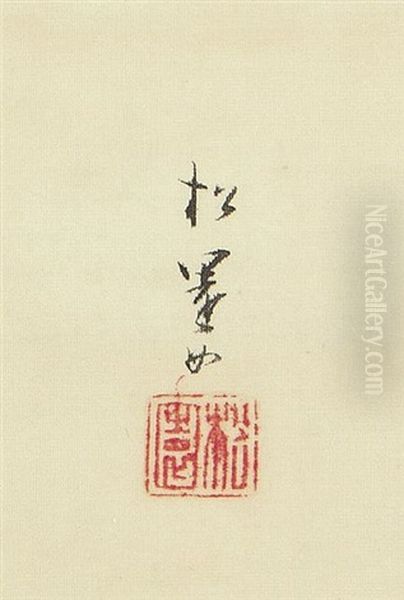 松園女
松園
NiceArtGallery.com